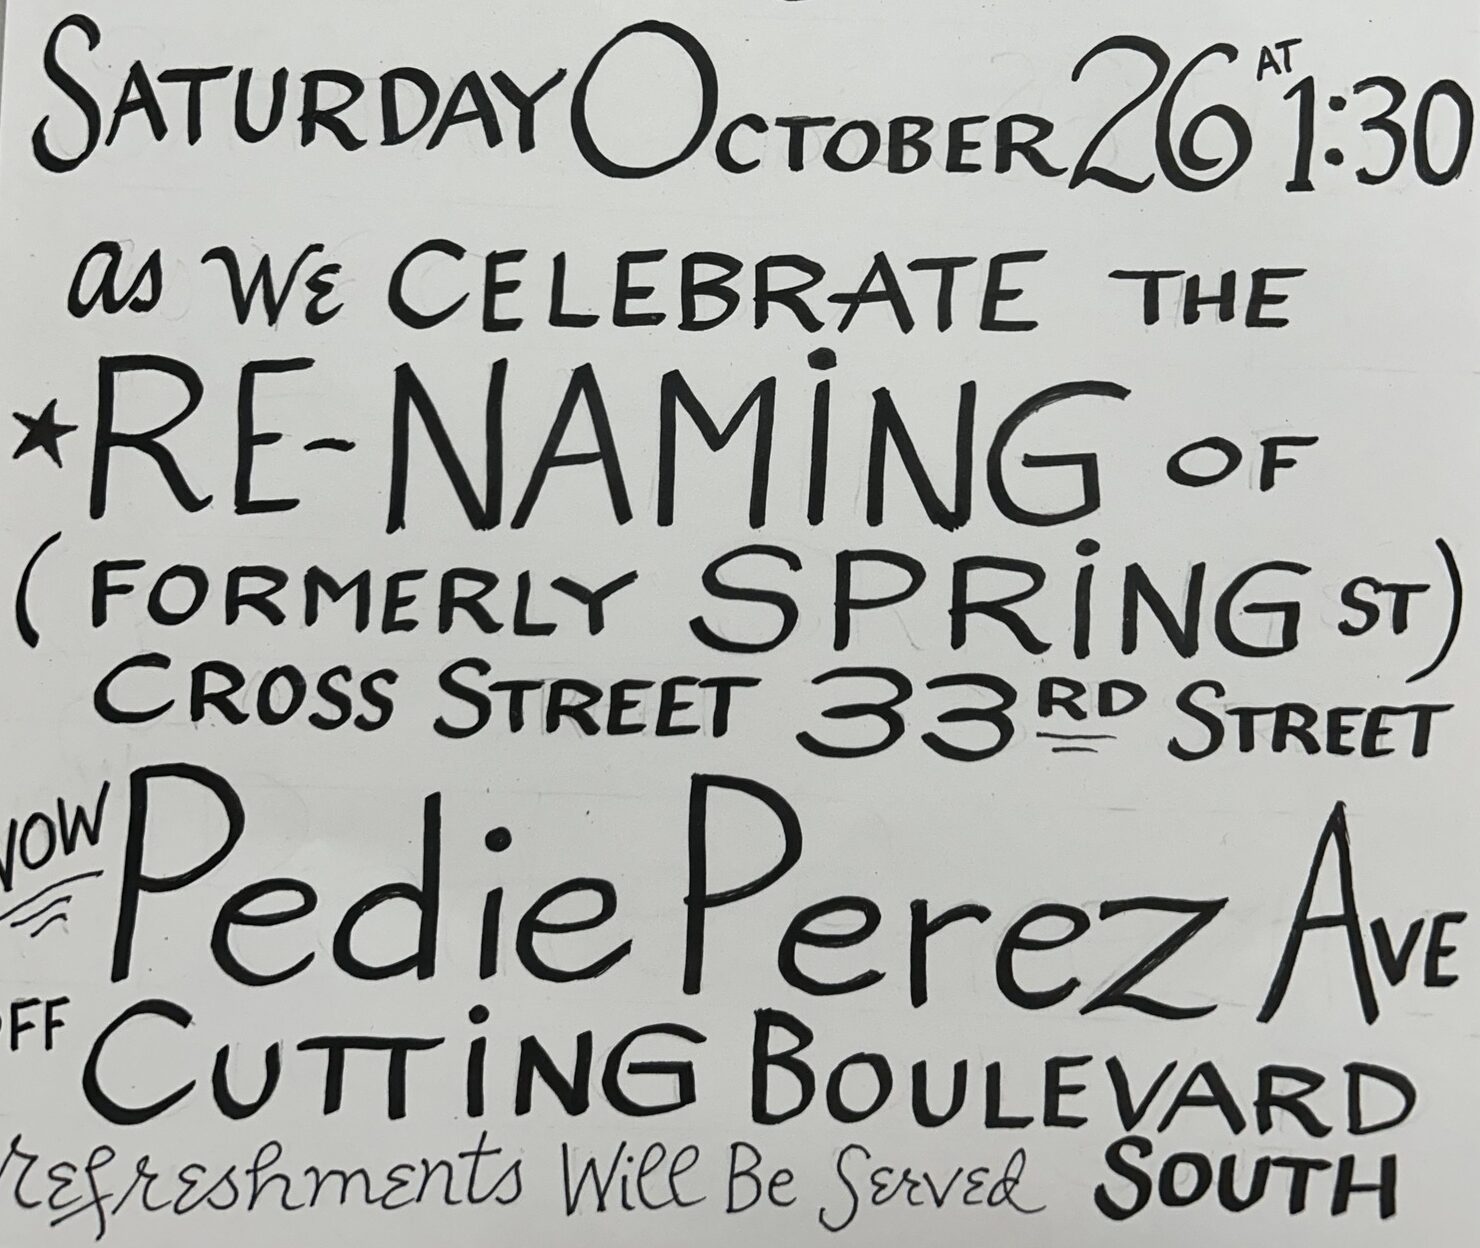 SATURDAY OCTOBER 26 AT 1:30
as WE CELEBRATE THE
★RE-NAMiNG OF
(FORMERLY SPRiNG ST)
CROSS STREET 33RD STREET
NOW Pedie Perez AVE
OFF CUTTiNG BOULEVARD
refreshments Will Be Served SOUTH